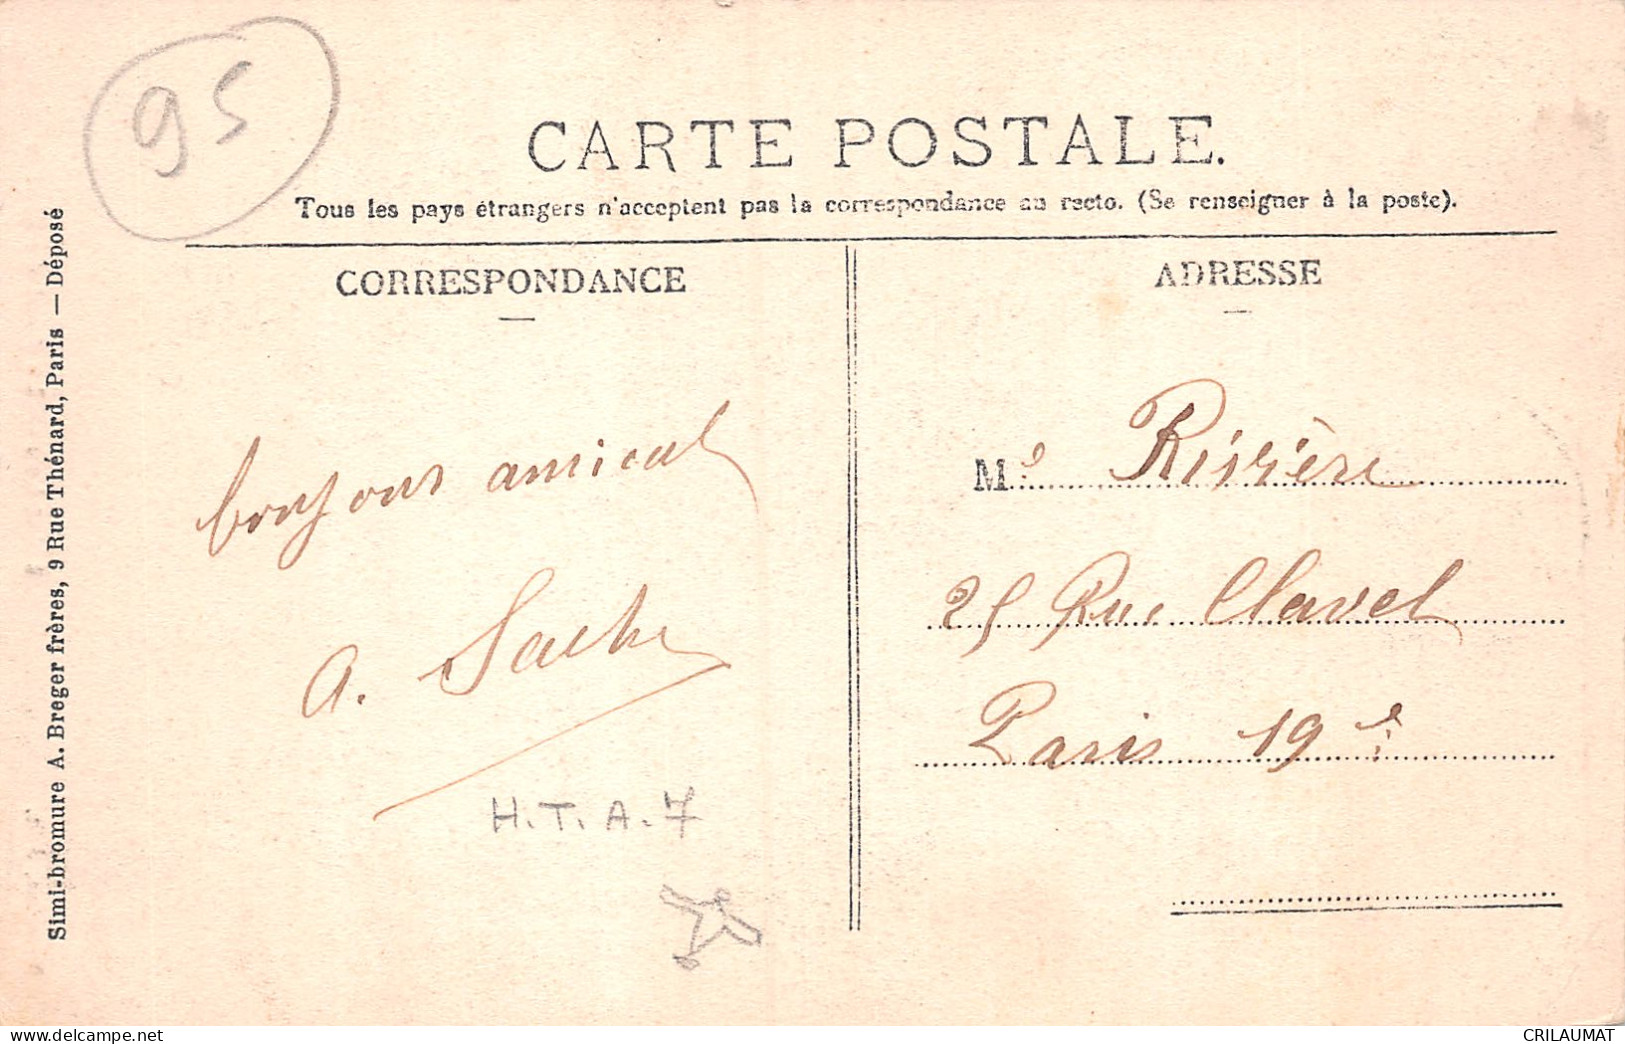 95
CARTE POSTALE.
Tous les pays étrangers n'acceptent pas la correspondance au recto. (Se renseigner à la poste).
CORRESPONDANCE
bonjour amical
A.
H.T.A.7
ADRESSE
Me Rivière
25 Rue Clavel
Paris 19e
Simi-bromure A. Breger frères, 9 Rue Thénard, Paris — Déposé
CRILAUMAT